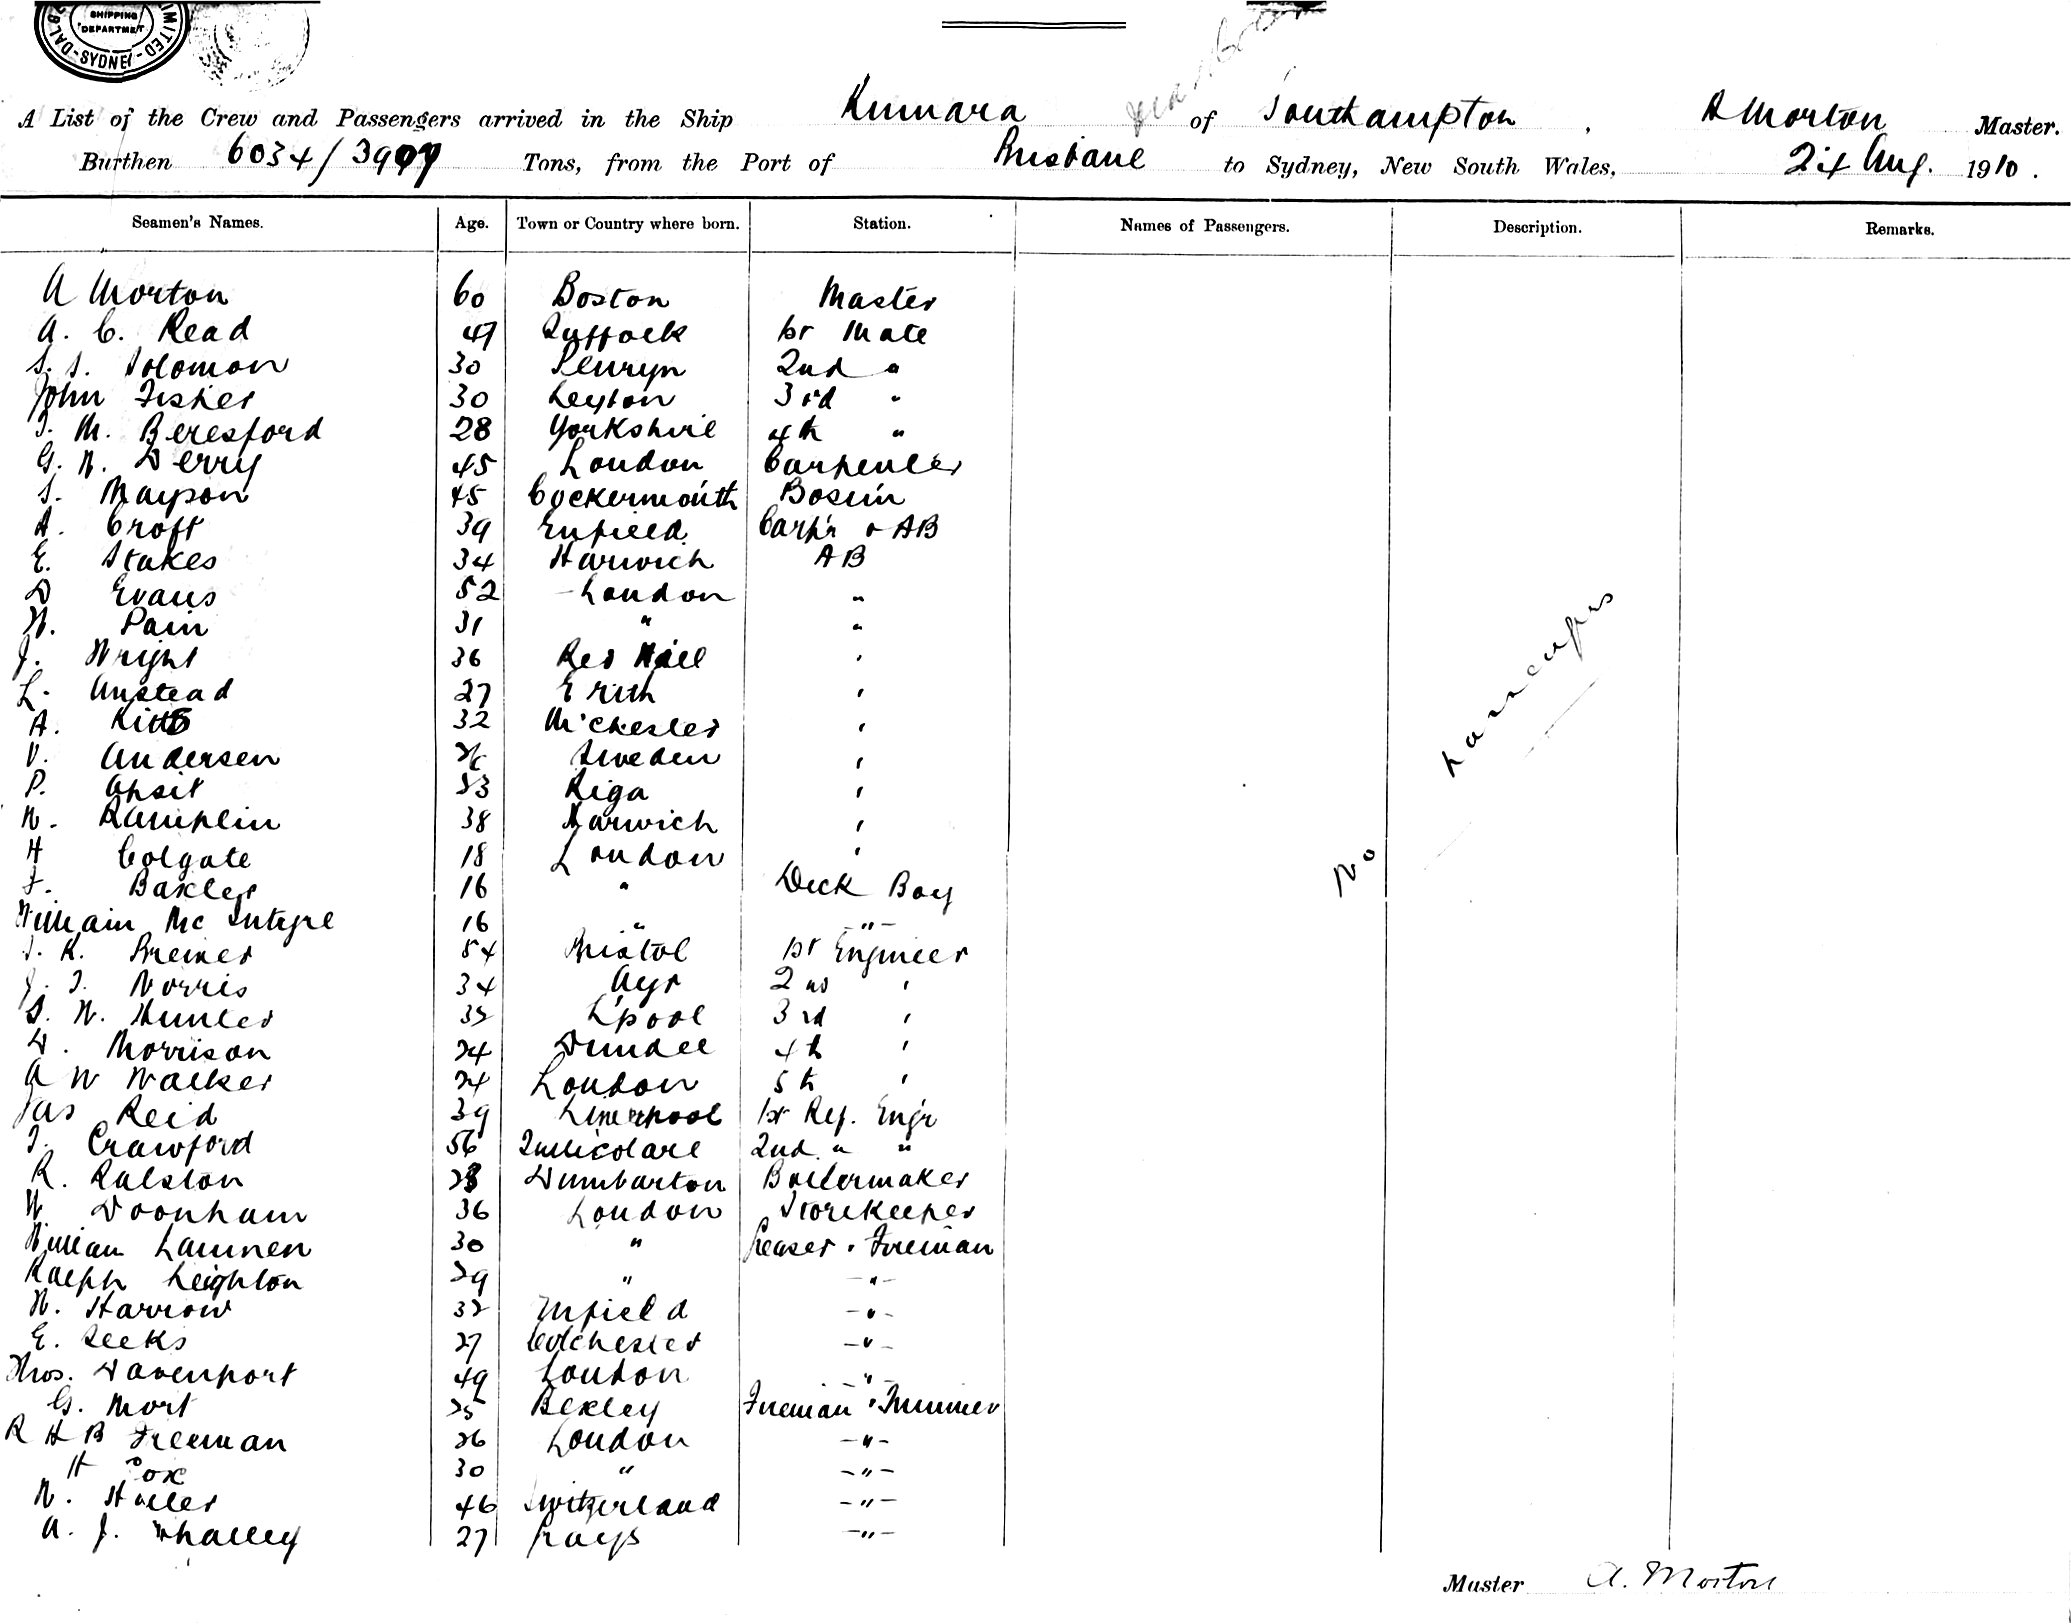 SHIPPING
DEPARTMENT
SYDNEY
A List of the Crew and Passengers arrived in the Ship Kumara of Southampton, A Morton Master.
Burthen 6034/ Tons, from the Port of Brisbane to Sydney, New South Wales, 24 Aug. 1910.
Seamen's Names. Age. Town or Country where born. Station. Names of Passengers. Description. Remarks.
A Morton 60 Boston Master
A. C. Read 47 Suffolk 1st Mate
S. S. Solomon 30 Penryn 2nd "
John Fisher 30 Leyton 3rd "
M. Beresford 28 Yorkshire 4th "
G. W. Derry 45 London Carpenter
S. Mayson 45 Cockermouth Bosun
A. Croft 39 Enfield Carp'r & AB
E. Stakes 34 Harwich AB
D Evans 52 London "
W. Pain 31 " "
J. Wright 36 Red Hill "
L. Anstead 27 Erith "
A. Kitts 32 M'chester "
V. Andersen 26 Sweden "
P. Apsit 53 Riga "
W. Ramplin 38 Harwich "
H Colgate 18 London "
F. Baxley 16 " Deck Boy
William McIntyre 16 " "
K. Bremer 54 Bristol 1st Engineer
J. J. Norris 34 Ayr 2nd "
S. W. Hunter 32 L'pool 3rd "
D. Morrison 24 Dundee 4th "
A W Walker 24 London 5th "
Jas Reid 39 Liverpool 1st Ref. Engr
J. Crawford 56 2nd " "
R. Ralston 28 Dumbarton Boilermaker
W Doonham 36 London Storekeeper
William Lamnen 30 " Greaser & Fireman
Ralph Leighton 29 " "
W. Harrow 32 Enfield "
E. Seeks 27 Colchester "
Thos. Davenport 49 London "
G. Mort 25 Bexley Fireman & Trimmer
R H B Freeman 26 London "
H Cox 30 " "
W. Huller 46 Switzerland "
A. J. Whalley 27 Grays "
No
Master A. Morton